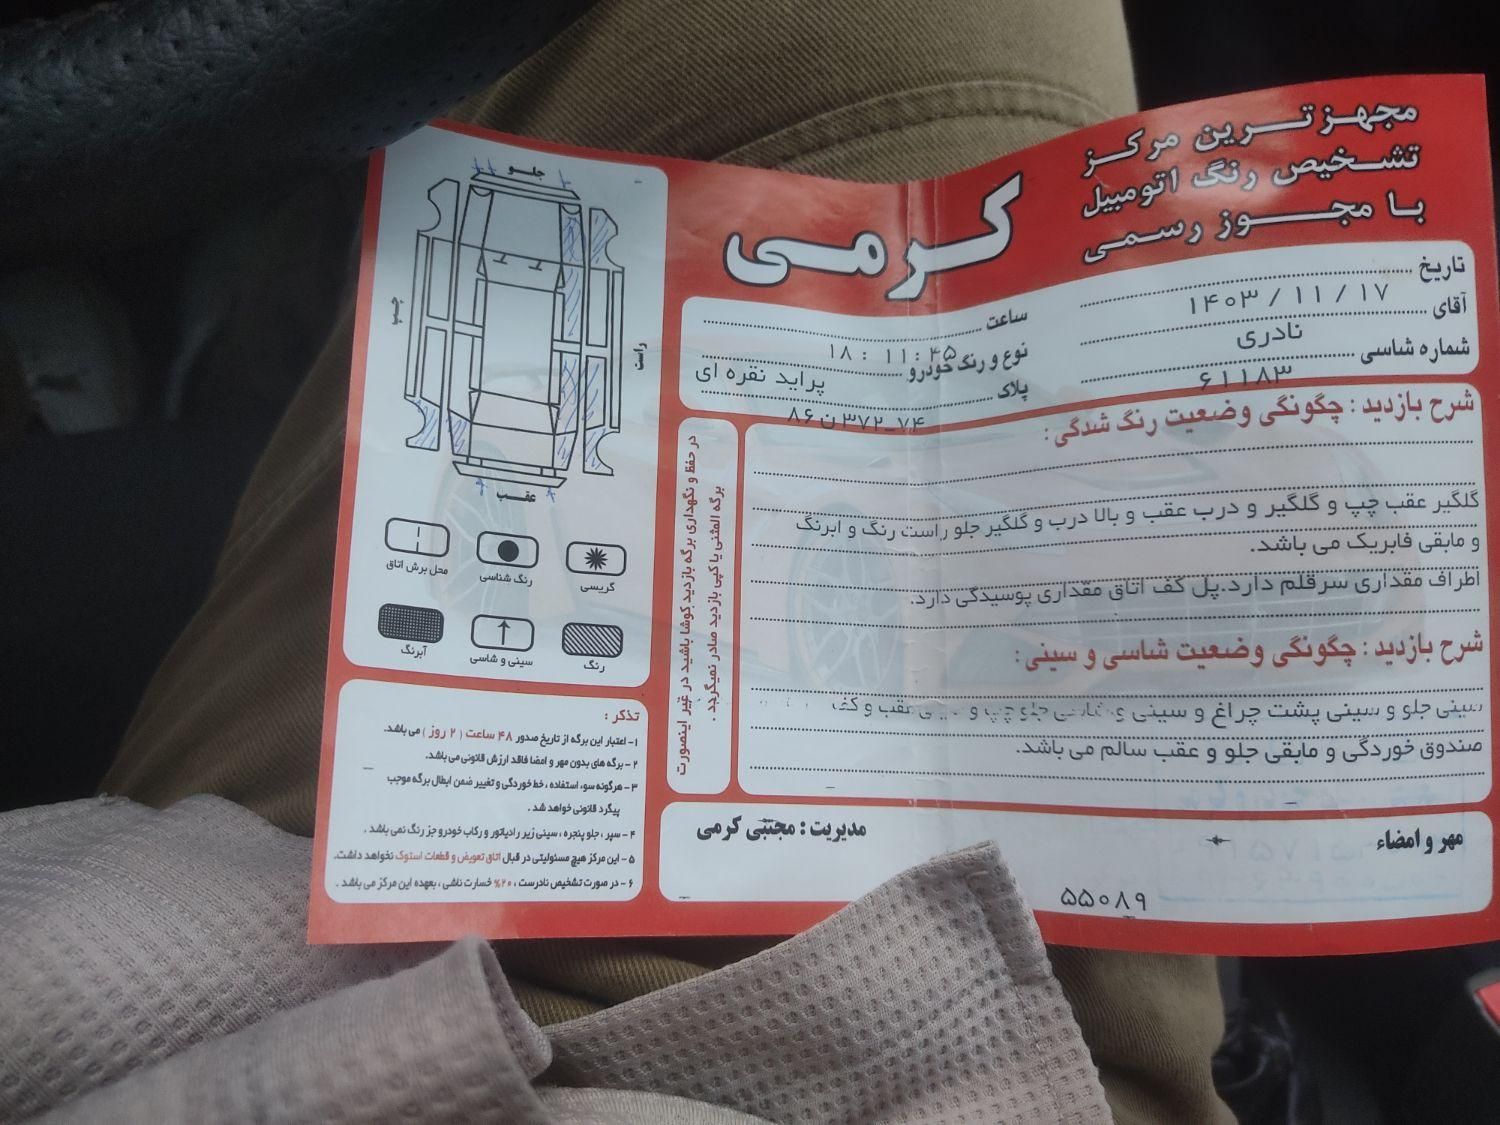 مجهزترین مرکز
تشخیص رنگ اتومبیل
با مجوز رسمی
کرمی
تاریخ
۱۴۰۳/۱۱/۱۷
ساعت
۱۸ : ۱۱:۴۵
آقای
نادری
نوع و رنگ خودرو
پراید نقره ای
شماره شاسی
۶۱۱۸۳
پلاک
۸۶ن۳۷۲_۷۴
شرح بازدید : چگونگی وضعیت رنگ شدگی :
گلگیر عقب چپ و گلگیر و درب عقب و بالا درب و گلگیر جلو راست رنگ و ابرنگ
و مابقی فابریک می باشد.
اطراف مقداری سرقلم دارد.پل کف اتاق مقداری پوسیدگی دارد.
شرح بازدید : چگونگی وضعیت شاسی و سینی :
سینی جلو و سینی پشت چراغ و سینی و شاسی جلو چپ و عقب و کف
صندوق خوردگی و مابقی جلو و عقب سالم می باشد.
مهر و امضاء
مدیریت : مجتبی کرمی
۵۵۰۸۹
در حفظ و نگهداری برگه بازدید کوشا باشید در غیر اینصورت
برگه المثنی یا کپی بازدید صادر نمیگردد .
جلو
چپ
راست
عقب
گریسی
رنگ شناسی
محل برش اتاق
رنگ
سینی و شاسی
آبرنگ
تذکر :
۱- اعتبار این برگه از تاریخ صدور ۴۸ ساعت ( ۲ روز ) می باشد.
۲- برگه های بدون مهر و امضا فاقد ارزش قانونی می باشد.
۳- هرگونه سوء استفاده ، خط خوردگی و تغییر ضمن ابطال برگه موجب
پیگرد قانونی خواهد شد .
۴- سپر ، جلو پنجره ، سینی زیر رادیاتور و رکاب خودرو جز رنگ نمی باشد .
۵- این مرکز هیچ مسئولیتی در قبال اتاق تعویض و قطعات استوک نخواهد داشت.
۶- در صورت تشخیص نادرست ، ۲۰% خسارت ناشی ، بعهده این مرکز می باشد .